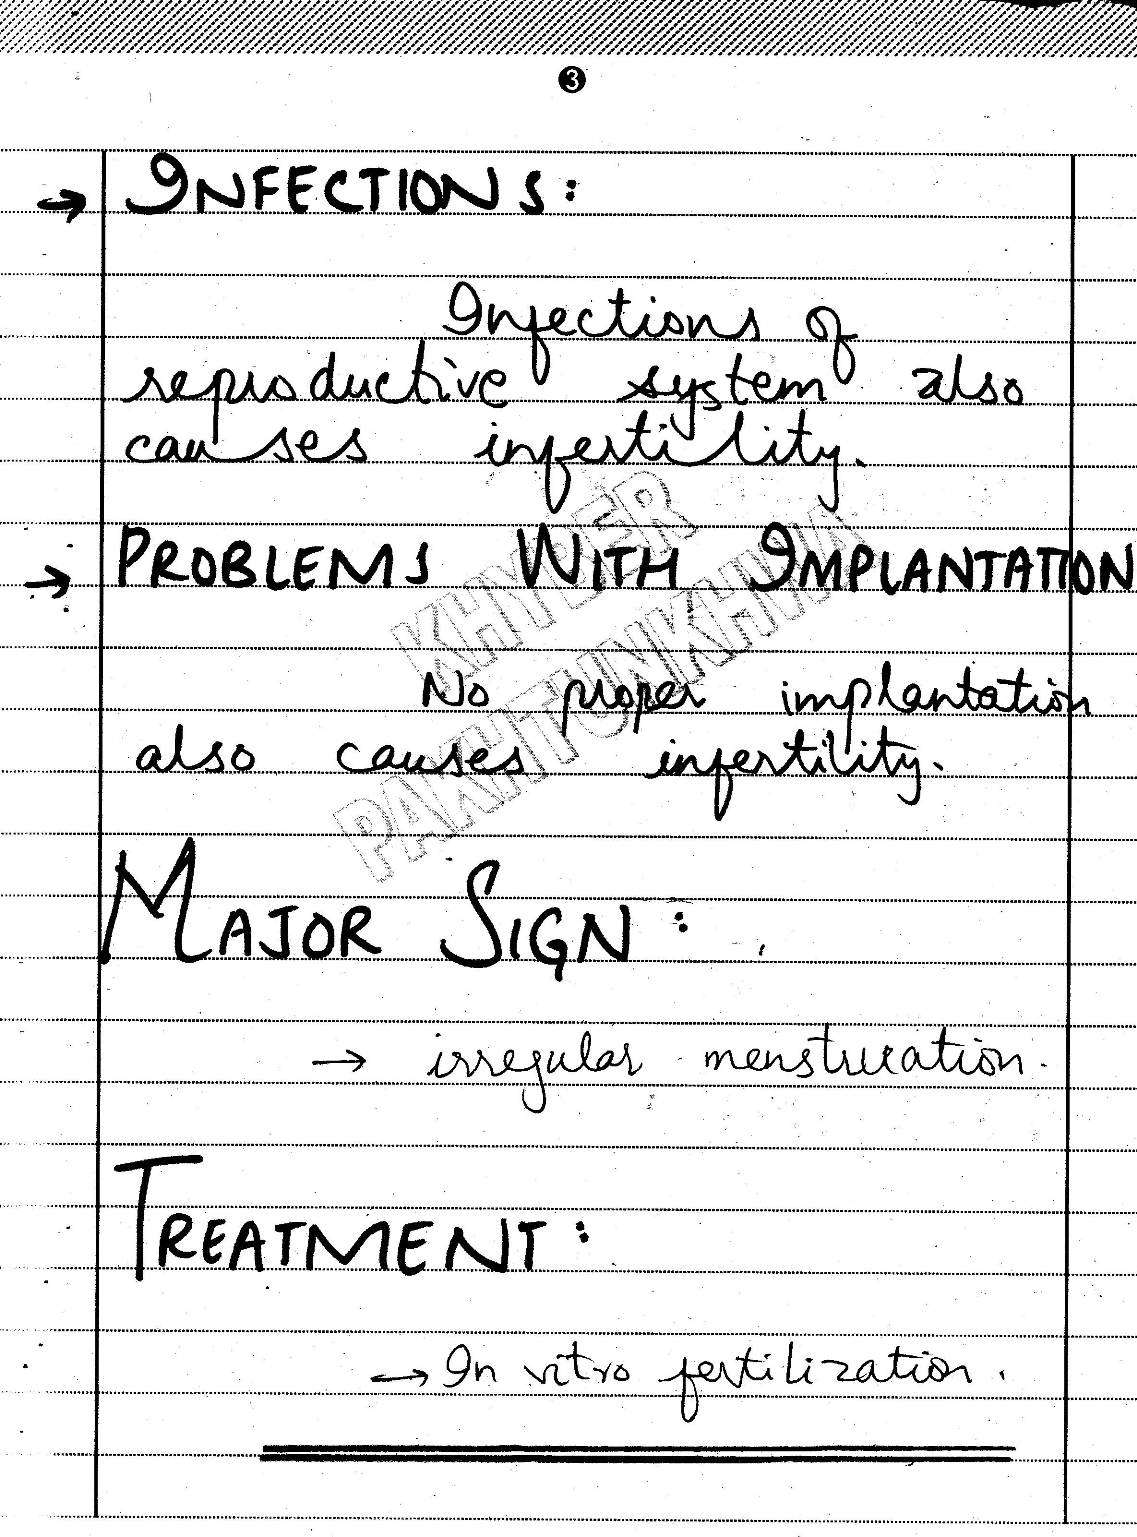 3
→ INFECTIONS:
Infections of
reproductive system also
causes infertility.
→ PROBLEMS WITH IMPLANTATION
No proper implantation
also causes infertility.
KHYBER
PAKHTUNKHWA
MAJOR SIGN:
→ irregular menstruation.
TREATMENT:
→ In vitro fertilization.